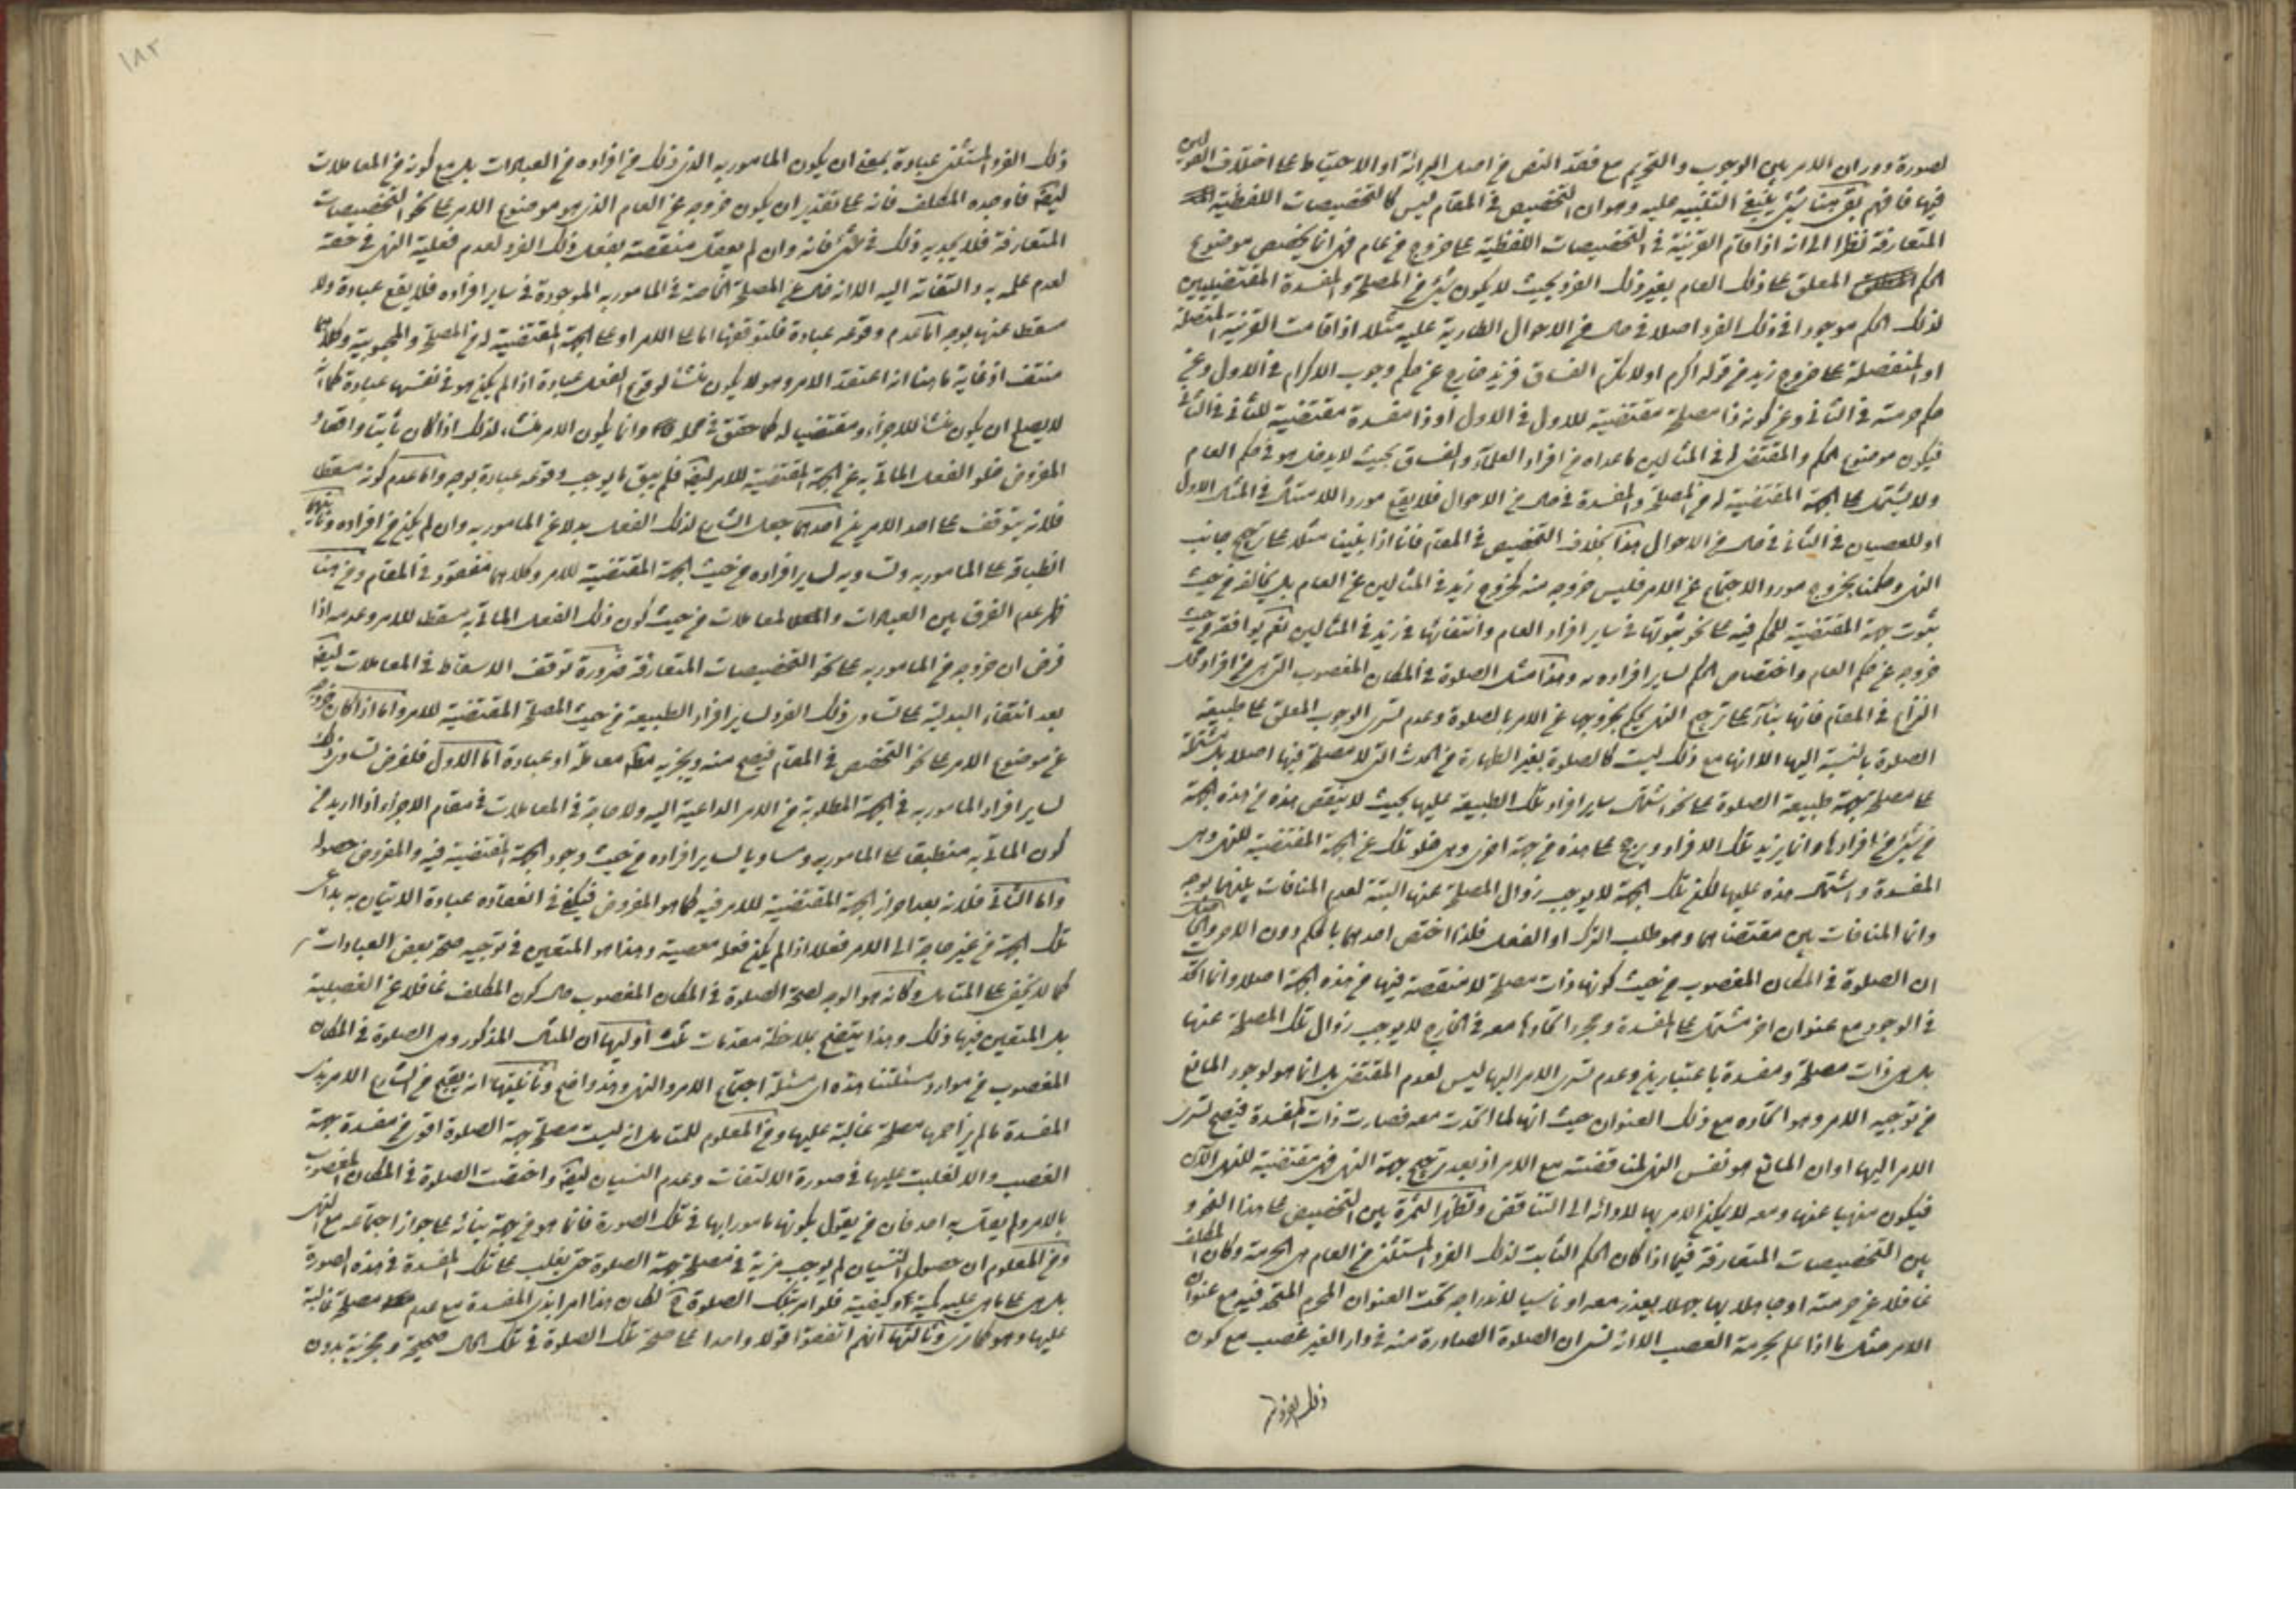 لصورة دوران الامر بين الوجوب والتحريم مع فقد النص من اصل البرائة او الاحتياط على اختلاف القولين
فيها فافهم بقى هنا شئ ينبغي التنبيه عليه وهو ان التخصيص في المقام ليس كالتخصيصات اللفظية
المتعارفة نظرا الى انه اذا قام القرينة في التخصيصات اللفظية على خروج من عام فهى انما يخصص موضوع
الحكم المعلق على ذلك العام بغير ذلك الفرد بحيث لا يكون شئ من المصلحة والمفسدة المقتضيين
لذلك الحكم موجودا في ذلك الفرد اصلا في حال من الاحوال الطارية عليه مثلا اذا قامت القرينة المتصلة
او المنفصلة على خروج زيد من قوله اكرم اولا تكرم الفساق فزيد خارج عن حكم وجوب الاكرام في الاول وعن
حكم حرمته في الثاني وعن كونه ذا مصلحة مقتضية للاول في الاول او ذا مفسدة مقتضية للثاني في الثاني
فيكون موضوع الحكم والمقتضى في المثالين ما عداه من افراد العلماء والفساق بحيث لا يدخل هو في حكم العام
ولا يشتمل على الجهة المقتضية له من المصلحة والمفسدة في حال من الاحوال فلا يقع موردا للامتثال في المثال الاول
او للعصيان في الثاني في حال من الاحوال هذا بخلاف التخصيص في المقام فانا اذا بنينا مثلا على ترجيح جانب
النهى وحكمنا بخروج مورد الاجتماع عن الامر فليس خروجه منه كخروج زيد في المثالين عن العام بل يخالفه من حيث
ثبوت جهة المقتضية للحكم فيه على نحو ثبوتها في ساير افراد العام وانتفائها في زيد في المثالين نعم يوافقه من حيث
خروجه عن حكم العام واختصاص الحكم لساير افراده وهذا مثل الصلوة في المكان المغصوب التى هى من افراد محل
النزاع في المقام فانها بناء على ترجيح النهى يحكم بخروجها عن الامر بالصلوة وعدم تسرى الوجوب المعلق على طبيعة
الصلوة بالنسبة اليها الا انها مع ذلك ليست كالصلوة بغير الطهارة من الحدث التى لا مصلحة فيها اصلا بل مشتملة
على مصلحة جهة طبيعة الصلوة على نحو اشتمال ساير افراد تلك الطبيعة عليها بحيث لا ينقص هذه من هذه الجهة
من شئ من افرادها وانما يزيد تلك الافراد ويرجح على هذه من جهة اخرى وهى خلو تلك عن الجهة المقتضية للنهى وهى
المفسدة واشتمال هذه عليها لكن تلك الجهة لا يوجب زوال المصلحة عنها البتة لعدم المنافات بينهما بوجه
وانما المنافات بين مقتضاهما وهو طلب الترك او الفعل فلذا اختص احدهما بالحكم دون الاخر والحاصل
ان الصلوة في المكان المغصوب من حيث كونها ذات مصلحة لا منقصة فيها من هذه الجهة اصلا وانما اتحد
في الوجود مع عنوان اخر مشتمل على المفسدة ومجرد اتحادها معه في الخارج لا يوجب زوال تلك المصلحة عنها
بل هى ذات مصلحة ومفسدة باعتبارين وعدم تسرى الامر اليها ليس لعدم المقتضى بل انما هو لوجود المانع
من توجيه الامر وهو اتحاده مع ذلك العنوان حيث انها لما اتحدت معه فصارت ذات المفسدة فيصح تسرى
الامر اليها او ان المانع هو نفس النهى لمناقضته مع الامر اذ بعد ترجيح جهة النهى فهى مقتضية للنهى الان
فيكون منهيا عنها ومعه لا يمكن الامر بها لادائه الى التناقض وتظهر الثمرة بين التخصيص على هذا النحو و
بين التخصيصات المتعارفة فيما اذا كان الحكم الثابت لذلك الفرد المستثنى من العام هى الحرمة وكان المكلف
غافلا عن حرمته او جاهلا بها جهلا يعذر معه او ناسيا لاندراجه تحت العنوان المحرم المتحد فيه مع عنوان
الامر مثل ما اذا علم بحرمة الغصب الا انه نسى ان الصلوة الصادرة منه في دار الغير غصب مع كون
ذلك الفرد
١٨٢
ذلك الفرد المستثنى عبادة بمعنى ان يكون المامور به الذى ذلك من افراده من العبادات بل مع كونه من المعاملات
ايضا فاوجده المكلف فانه على تقدير ان يكون خروجه عن العام الذى هو موضوع الامر على نحو التخصيصات
المتعارفة فلا يجديه ذلك في شئ فانه وان لم يعقل منقصة بفعل ذلك الفرد لعدم فعلية النهى في حقه
لعدم علمه به والتفاته اليه الا انه خال عن المصلحة الخاصة في المامور به الموجودة في ساير افراده فلا يقع عبادة ولا
مسقطا عنها بوجه اما عدم وقوعه عبادة فلتوقفها اما على الامر او على الجهة المقتضية له من المصلحة والمحبوبية وكلاهما
منتف اذ غاية ما هنا انه اعتقد الامر وهو لا يكون منشأ لوقوع الفعل عبادة اذا لم يكن هو في نفسها عبادة كما انه
لا يصلح ان يكون منشأ للاجزاء ومقتضيا له كما حقق في محله وانما يكون الامر منشاء لذلك اذا كان ثابتا واقعا و
المفروض خلو الفعل الماتى به عن الجهة المقتضية للامر ايضا فلم يبق ما يوجب وقوعه عبادة بوجه واما عدم كونه مسقطا
فلانه يتوقف على احد الامرين احدهما جعل الشارع لذلك الفعل بدلا عن المامور به وان لم يكن من افراده وثانيهما
انطباقه على المامور به وتساويه لساير افراده من حيث الجهة المقتضية للامر وكلاهما مفقود في المقام ومن هنا
ظهر عدم الفرق بين العبادات والمعاملات من حيث كون ذلك الفعل الماتى به مسقطا للامر وعدمه اذا
فرض ان خروجه من المامور به على نحو التخصيصات المتعارفة ضرورة توقف الاسقاط في المعاملات ايضا
بعد انتفاء البدلية على تساوى ذلك الفرد لساير افراد الطبيعة من حيث المصلحة المقتضية للامر واما اذا كان خروجه
عن موضوع الامر على نحو التخصيص في المقام فيصح منه ويجزيه معاملة او عبادة اما الاول فلفرض تساوى ذلك
لساير افراد المامور به في الجهة المطلوبة من الامر الداعية اليه ولا حاجة في المعاملات في مقام الاجزاء اذا ازيد من
كون الماتى به منطبقا على المامور به ومساويا لساير افراده من حيث وجود الجهة المقتضية فيه والمفروض حصوله
واما الثاني فلانه بعد احراز الجهة المقتضية للامر فيه كما هو المفروض فيكفي في انعقاده عبادة الاتيان به بداعى
تلك الجهة من غير حاجة الى الامر فعلا اذا لم يكن فعله معصية وهذا هو المتعين في توجيه صحة بعض العبادات
كما لا يخفى على المتامل وكانه هو الوجه لصحة الصلوة في المكان المغصوب حال كون المكلف غافلا عن الغصبية
بل المتعين فيها ذلك وهذا يتضح بملاحظة مقدمات ثلث اوليها ان المثال المذكور وهى الصلوة في المكان
المغصوب من موارد مسئلتنا هذه اى مسئلة اجتماع الامر والنهى وهذا واضح وثانيتها انه يقبح من الشارع الامر بذى
المفسدة ما لم يزاحمها مصلحة غالبة عليها ومن المعلوم للمتامل انه ليست مصلحة جهة الصلوة اقوى من مفسدة جهة
الغصب والا لغلبت عليها في صورة الالتفات وعدم النسيان ايضا واختصت الصلوة في المكان المغصوب
بالامر ولم يعقل به احد فان من يقول بكونها مامورا بها في تلك الصورة فانما هو من جهة بنائه على جواز اجتماعه مع النهى
ومن المعلوم ان حصول النسيان لم يوجب مزية في مصلحة جهة الصلوة حتى يغلب على تلك المفسدة في هذه الصورة
بل هى على ما هى عليه كمية وكيفية فلو امر بتلك الصلوة لكان هذا امرا بذى المفسدة مع عدم مصلحة غالبة
عليها وهو كما ترى وثالثتها انهم اتفقوا قولا واحدا على صحة تلك الصلوة في تلك الحال صحيحة ومجزية بدون